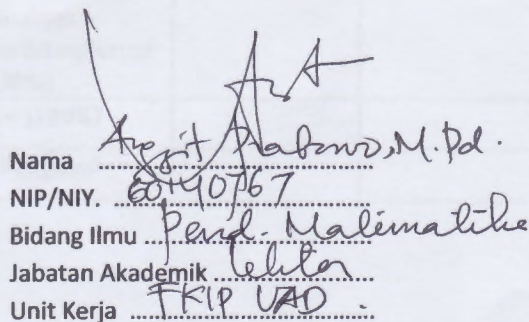 Nama Anggit Prabowo, M.Pd.
NIP/NIY. 60140767
Bidang Ilmu Pend. Matematika
Jabatan Akademik Lektor
Unit Kerja FKIP UAD.